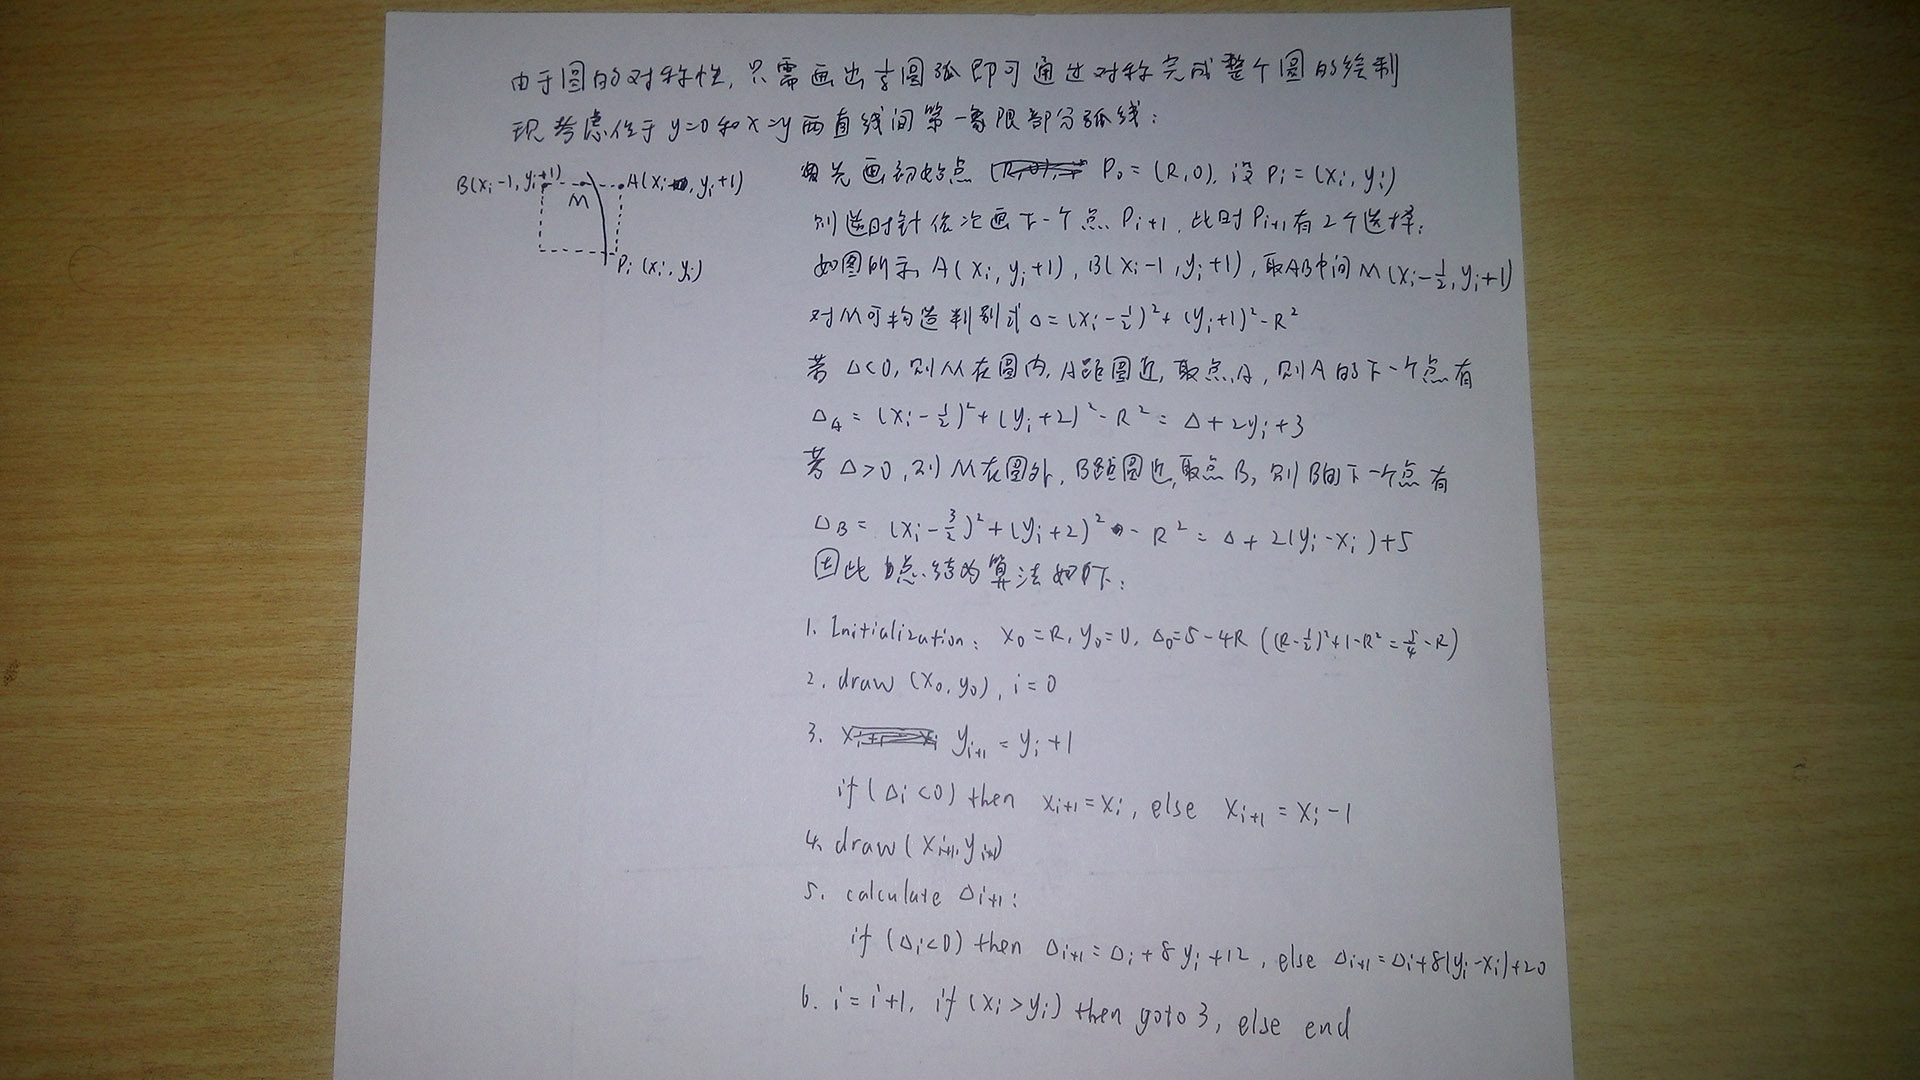 由于圆的对称性,只需画出⅛圆弧即可通过对称完成整个圆的绘制
现考虑位于 y=0 和 x=y 两直线间第一象限部分弧线:
B(xᵢ-1, yᵢ+1) M A(xᵢ, yᵢ+1)
Pᵢ (xᵢ, yᵢ)
首先画初始点 P₀ = (R,0), 设 Pᵢ = (xᵢ, yᵢ)
则逆时针依次画下一个点 Pᵢ₊₁, 此时 Pᵢ₊₁有2个选择:
如图所示 A(xᵢ, yᵢ+1), B(xᵢ-1, yᵢ+1), 取AB中间 M(xᵢ-½, yᵢ+1)
对M可构造判别式 Δ=(xᵢ-½)²+(yᵢ+1)²-R²
若 Δ<0, 则M在圆内, A距圆近, 取点A, 则A的下一个点有
Δ_A = (xᵢ-½)²+(yᵢ+2)²-R² = Δ+2yᵢ+3
若 Δ>0, 则M在圆外, B距圆近, 取点B, 则B的下一个点有
Δ_B = (xᵢ-3/2)²+(yᵢ+2)²-R² = Δ+2(yᵢ-xᵢ)+5
因此 算法如下:
1. Initialization: x₀=R, y₀=0, Δ₀=5-4R ((R-½)²+1-R²=5/4-R)
2. draw (x₀, y₀), i=0
3. yᵢ₊₁ = yᵢ+1
if (Δᵢ<0) then xᵢ₊₁=xᵢ, else xᵢ₊₁ = xᵢ-1
4. draw (xᵢ₊₁, yᵢ₊₁)
5. calculate Δᵢ₊₁:
if (Δᵢ<0) then Δᵢ₊₁=Δᵢ+8yᵢ+12, else Δᵢ₊₁=Δᵢ+8(yᵢ-xᵢ)+20
6. i=i+1, if (xᵢ>yᵢ) then goto 3, else end